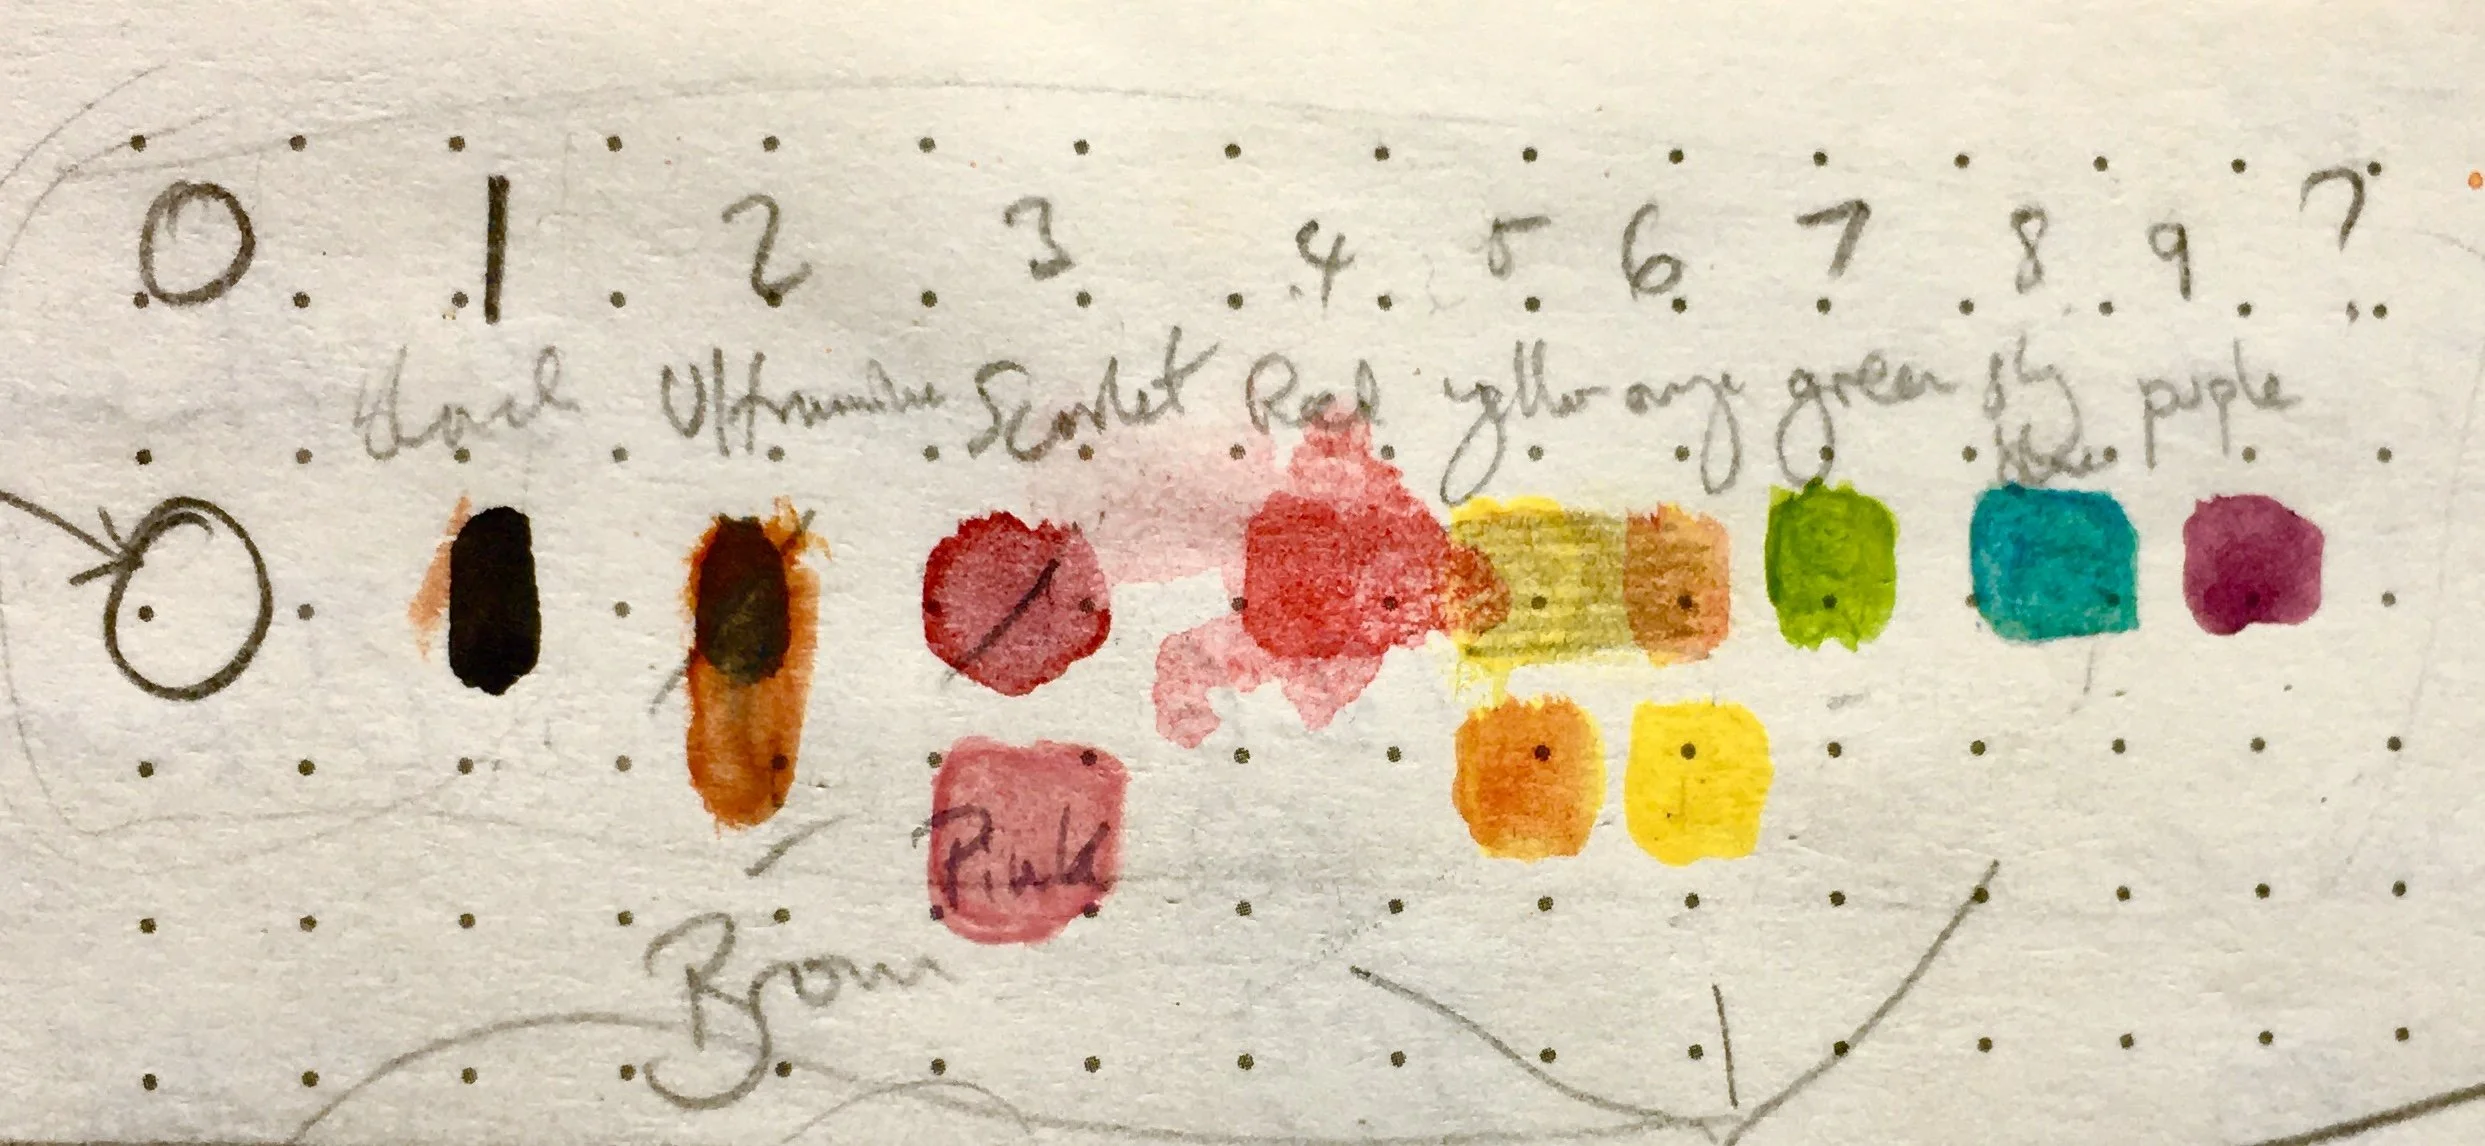 0 1 2 3 4 5 6 7 8 9 ?
black Ultramarine Scarlet Red yellow orange green sky purple
blue
Pink
Brown